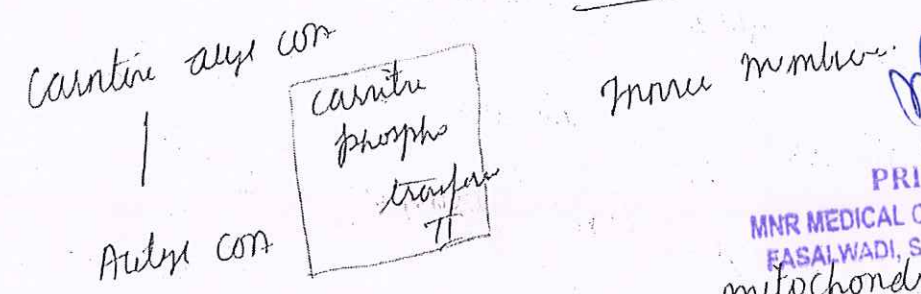 Carntine alyl COA
Carnitre
phospho
transferase
II
Innner membrane.
Acetyl COA
PRI
MNR MEDICAL C
FASALWADI, S
mitochond